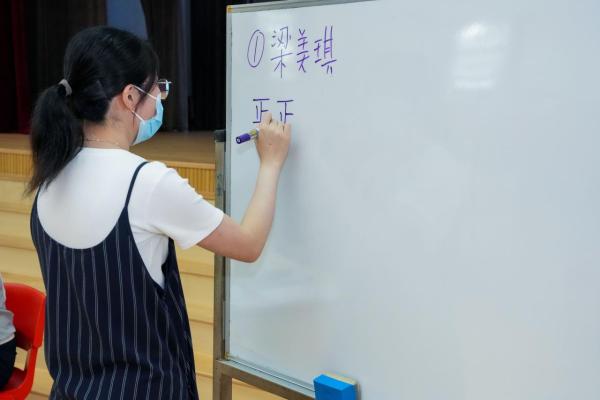 ①梁美琪
正正